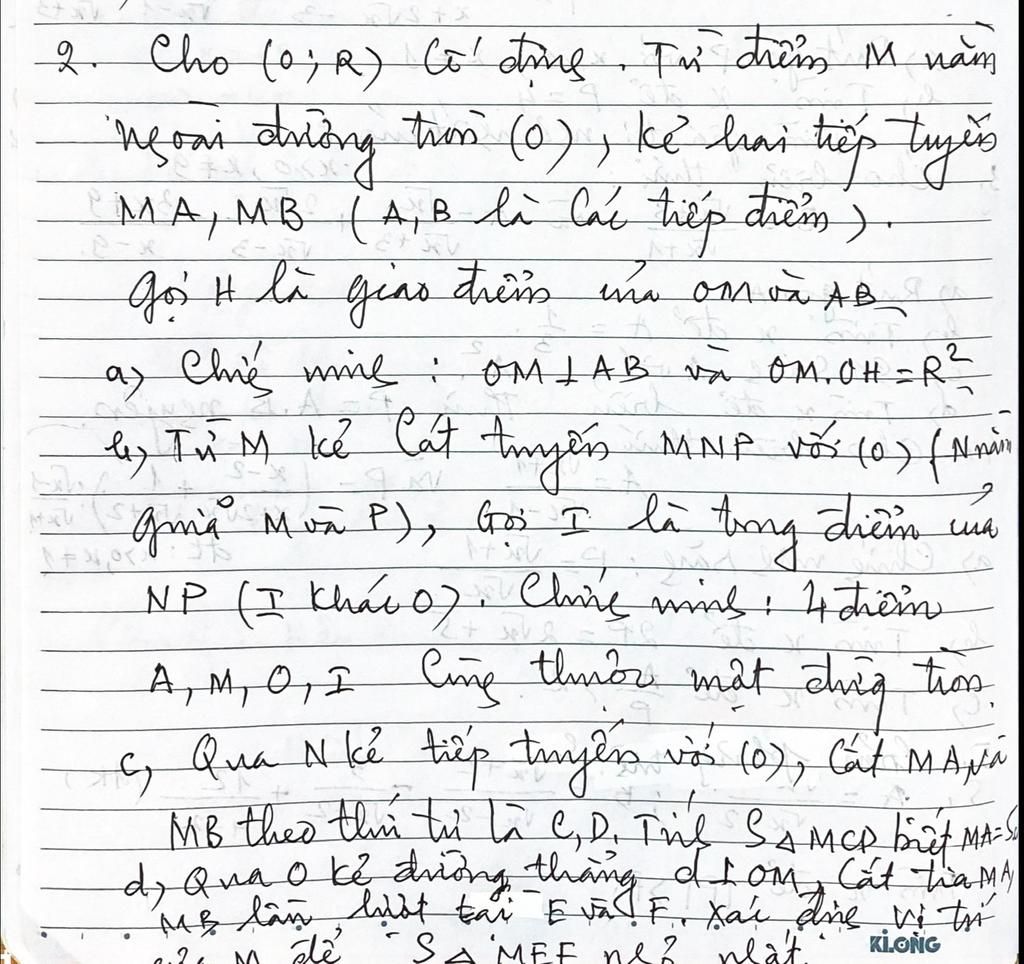 2. Cho (O; R) Cố định. Từ điểm M nằm
ngoài đường tròn (O), kẻ hai tiếp tuyến
MA, MB (A, B là các tiếp điểm).
Gọi H là giao điểm của OM và AB
a, Chứng minh : OM⊥AB và OM.OH = R²
b, Từ M kẻ Cát tuyến MNP với (O) (N nằm
giữa M và P), Gọi I là trung điểm của
NP (I khác O). Chứng minh : 4 điểm
A, M, O, I Cùng thuộc một đường tròn.
c, Qua N kẻ tiếp tuyến với (O), Cắt MA và
MB theo thứ tự là C, D. Tính S△MCD biết MA=5
d, Qua O kẻ đường thẳng d⊥OM, Cắt tia MA,
MB lần lượt tại E và F. Xác định vị trí
của M để S△MEF nhỏ nhất.
KLONG